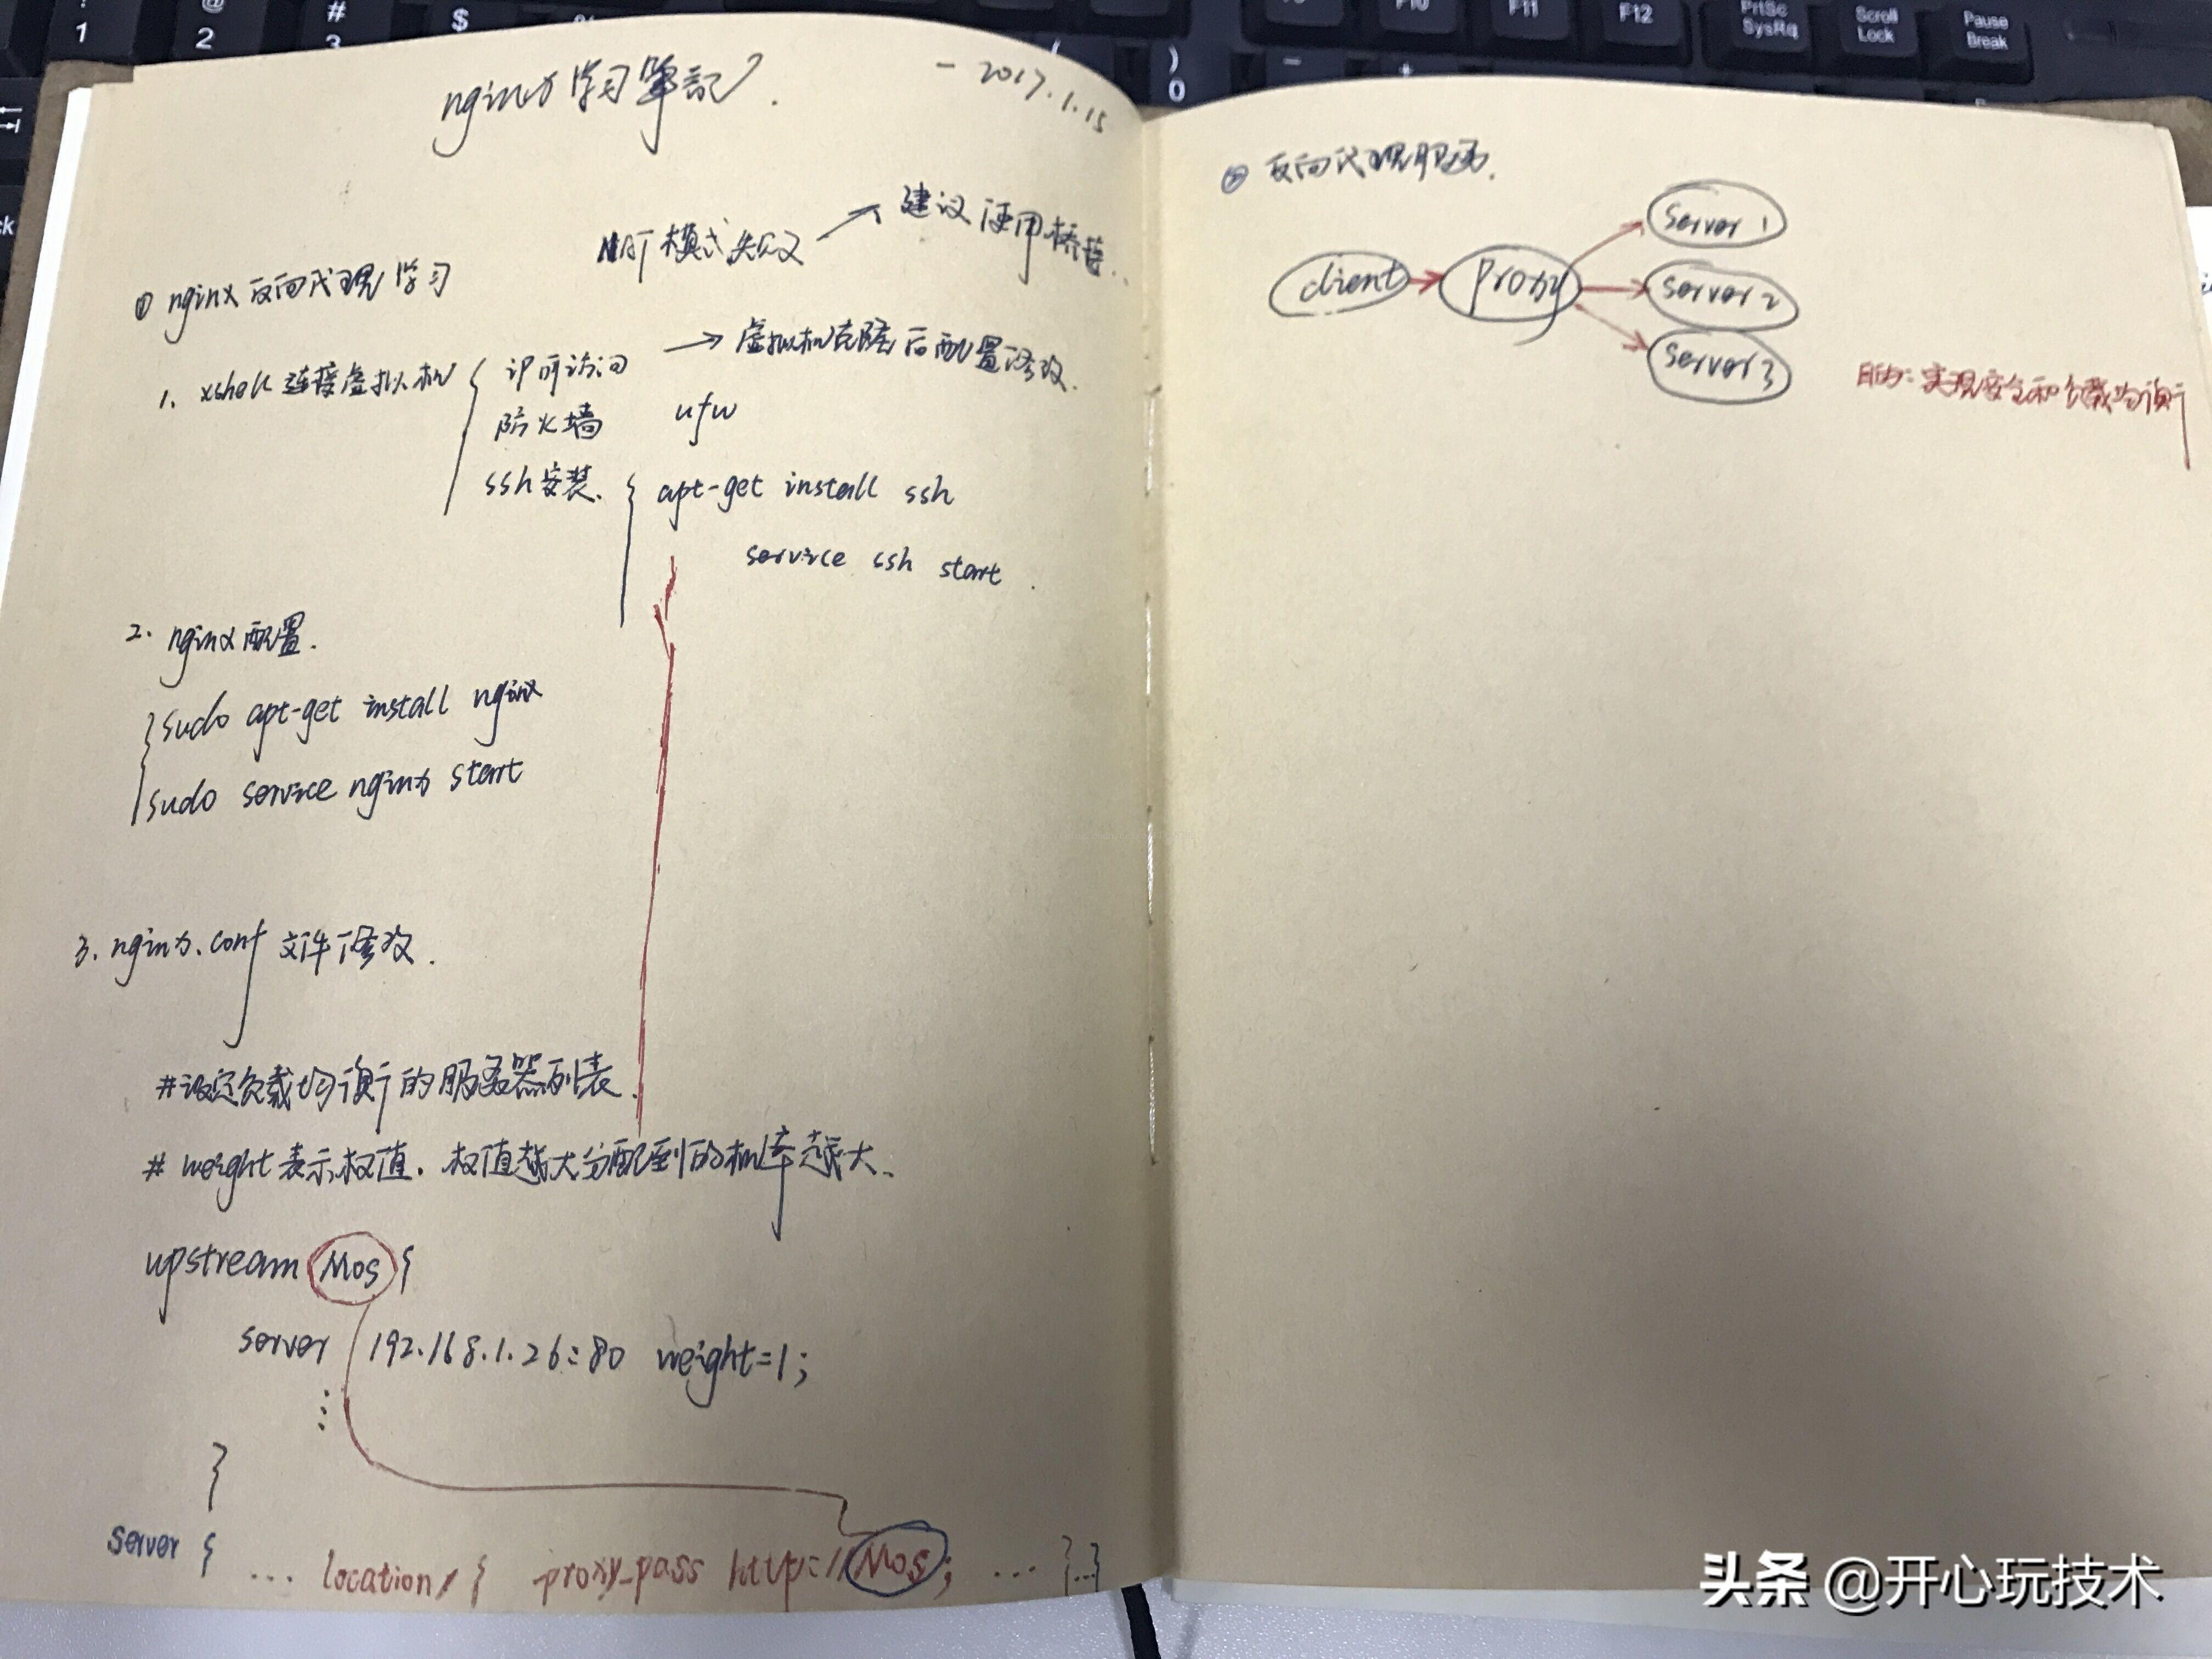 nginx学习笔记. - 2017.1.15
NAT模式失败 → 建议使用桥接..
① nginx反向代理学习
1. xshell连接虚拟机 { 许可访问 → 虚拟机克隆后配置修改.
防火墙 ufw
ssh安装. { apt-get install ssh
service ssh start.
2. nginx配置.
{ sudo apt-get install nginx
sudo service nginx start
3. nginx.conf 文件修改.
#设定负载均衡的服务器列表.
# weight表示权值. 权值越大分配到的机率越大.
upstream Mos {
server 192.168.1.26:80 weight=1;
⋮
}
server { ... location / { proxy_pass http://Mos; ... }...}
② 反向代理服务.
client → Proxy → server 1
server 2
server 3
目的: 实现安全和负载均衡
头条 @开心玩技术
! 1
@ 2
# 3
$
%
(
) 0
-
+
F10
F11
F12
PrtSc SysRq
Scroll Lock
Pause Break
ck